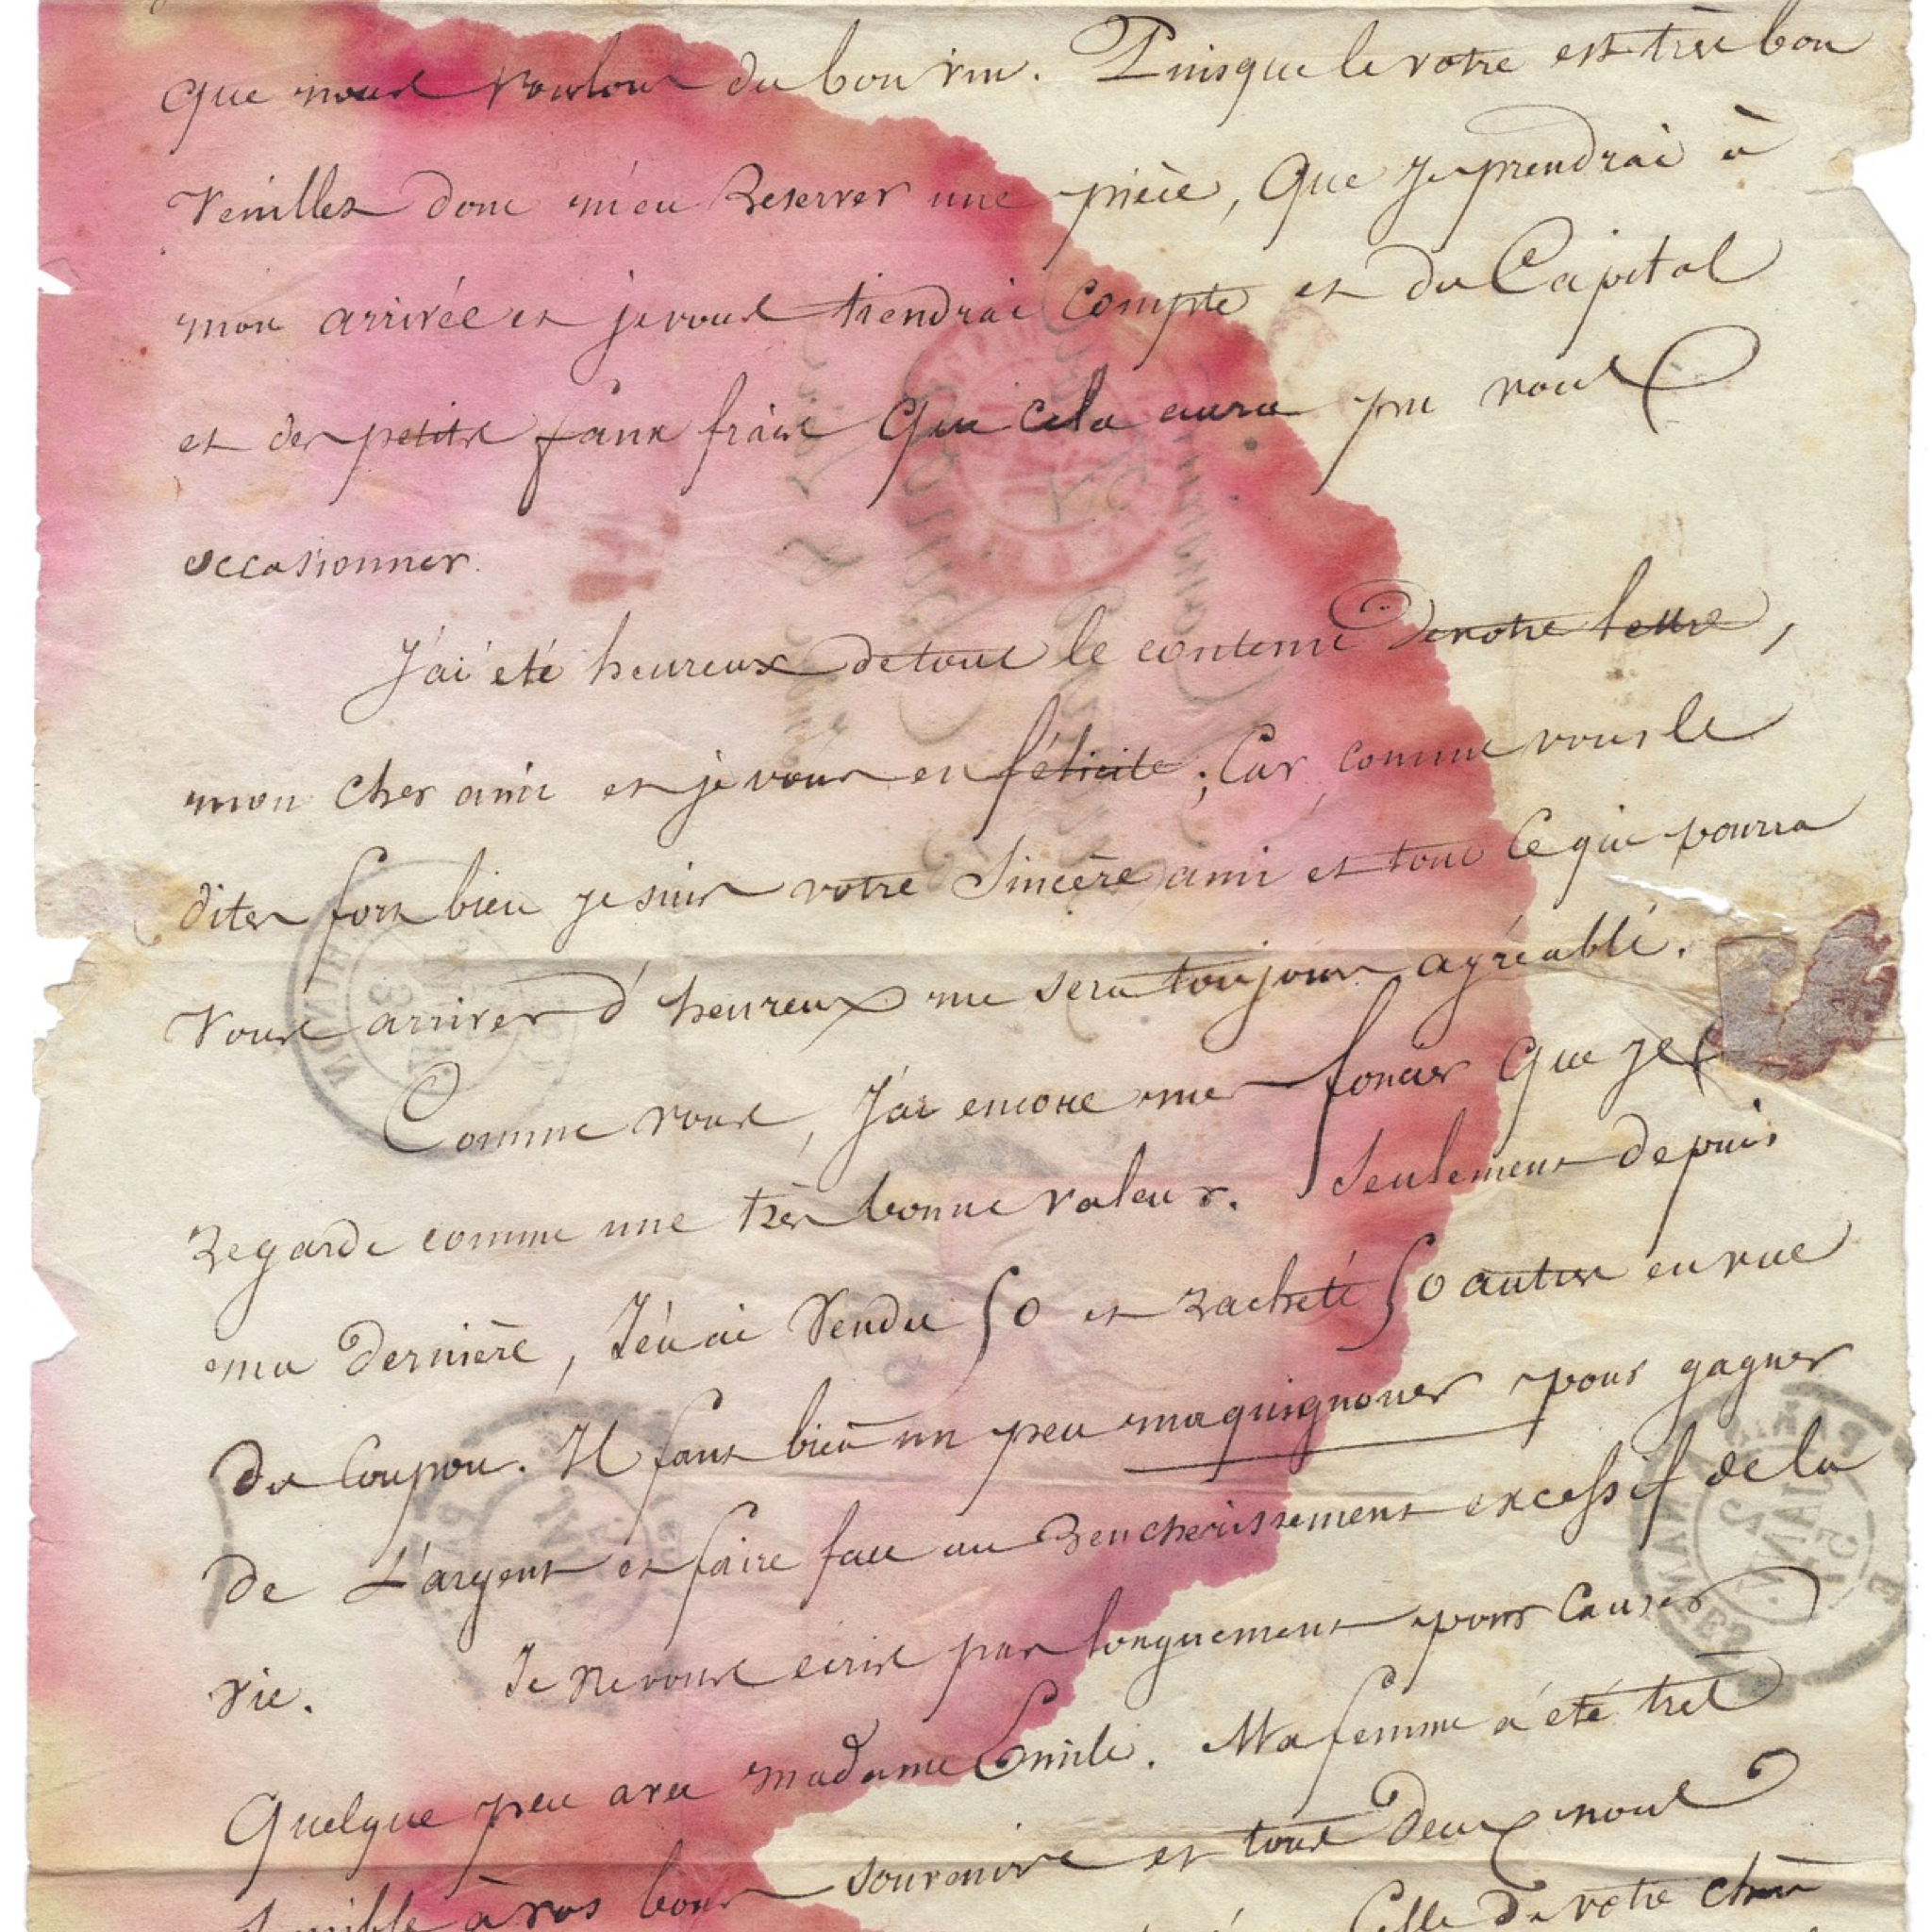 que nous voulons du bon vin. Puisque le votre est très bon
Veuillez donc m'en Reserver une pièce, que je prendrai à
mon arrivée et je vous tiendrai compte et du Capital
et des petits faux frais que cela aura pu vous
occasionner.
J'ai été heureux de tout le contenu de votre lettre,
mon cher ami et je vous en félicite ; Car, comme vous le
dites fort bien je suis votre Sincère ami et tout ce qui pourra
Vous arriver d'heureux me sera toujours agréable.
Comme vous, J'ai encore mes foncier que je
Regarde comme une très bonne valeur. Seulement depuis
ma dernière, J'en ai Vendu 50 et racheté 50 autres en vue
du Coupon. Il faut bien un peu maquignoner pour gagner
de L'argent et faire face au Rencherissement excessif de la
vie. Je ne vous écris pas longuement pour Causer
Quelque peu avec madame Emile. Ma femme a été très
sensible à vos bons souvenirs et tous deux nous
Celle de votre chère